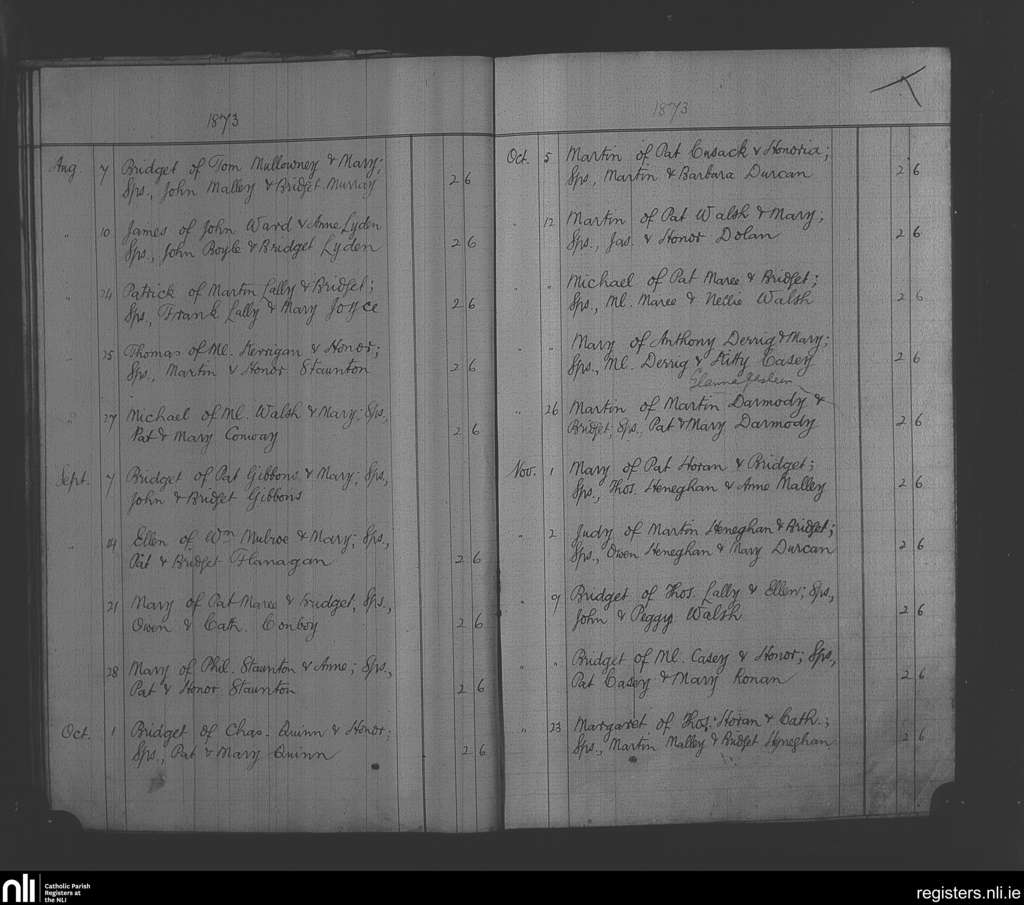 1873
Aug. 7 Bridget of Tom Mullowney & Mary;
Sps., John Malley & Bridget Murray 2 6
" 10 James of John Ward & Anne Lyden
Sps., John Boyle & Bridget Lyden 2 6
" 24 Patrick of Martin Lally & Bridget;
Sps., Frank Lally & Mary Joyce 2 6
" 25 Thomas of Ml. Kerrigan & Honor;
Sps., Martin & Honor Staunton 2 6
" 27 Michael of Ml. Walsh & Mary; Sps.,
Pat & Mary Conway 2 6
Sept. 7 Bridget of Pat Gibbons & Mary; Sps.,
John & Bridget Gibbons
" 14 Ellen of Wm Mulroe & Mary; Sps.,
Pat & Bridget Flanagan 2 6
21 Mary of Pat Maree & Bridget; Sps.,
Owen & Cath. Conboy 2 6
28 Mary of Phil. Staunton & Anne; Sps.,
Pat & Honor Staunton 2 6
Oct. 1 Bridget of Chas. Quinn & Honor;
Sps., Pat & Mary Quinn 2 6
1873
Oct. 5 Martin of Pat Cusack & Honoria;
Sps., Martin & Barbara Durcan 2 6
" 12 Martin of Pat Walsh & Mary;
Sps., Jas. & Honor Dolan 2 6
" " Michael of Pat Maree & Bridget;
Sps., Ml. Maree & Nellie Walsh 2 6
" " Mary of Anthony Derrig & Mary;
Sps., Ml. Derrig & Kitty Casey 2 6
" 26 Martin of Martin Darmody &
Bridget; Sps., Pat & Mary Darmody 2 6
Nov. 1 Mary of Pat Horan & Bridget;
Sps., Thos. Heneghan & Anne Malley 2 6
" 2 Judy of Martin Heneghan & Bridget;
Sps., Owen Heneghan & Mary Durcan 2 6
" 9 Bridget of Thos. Lally & Ellen; Sps.,
John & Peggy Walsh 2 6
" " Bridget of Ml. Casey & Honor; Sps.,
Pat Casey & Mary Ronan 2 6
" 23 Margaret of Thos. Horan & Cath.;
Sps., Martin Malley & Bridget Heneghan 2 6
nli Catholic Parish
Registers at
the NLI
registers.nli.ie